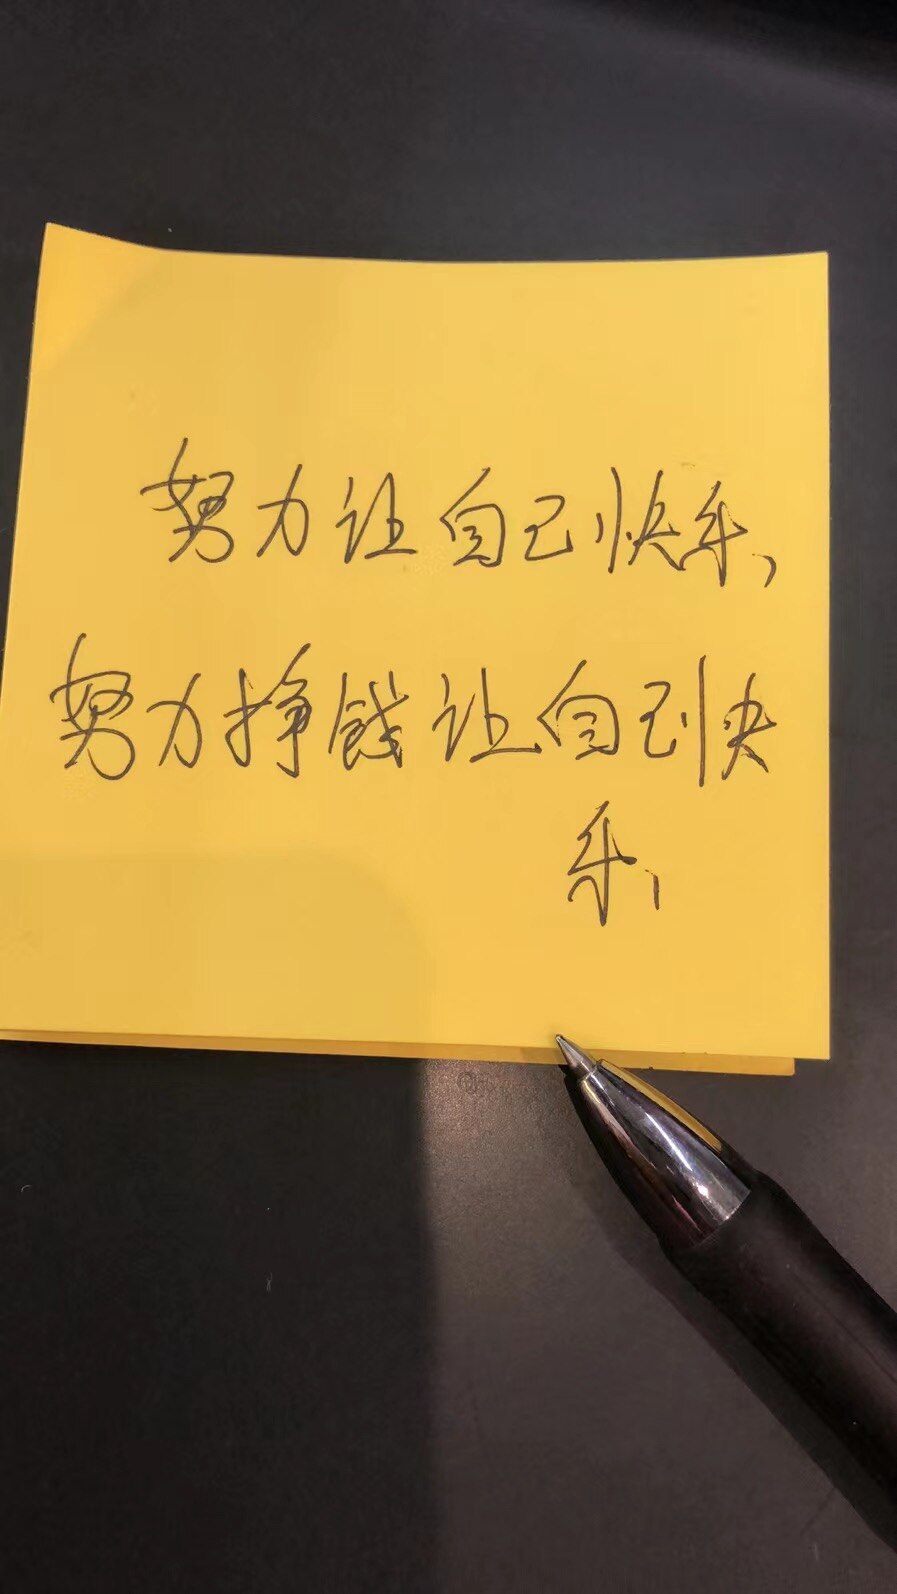 努力让自己快乐、
努力挣钱让自己快
乐、